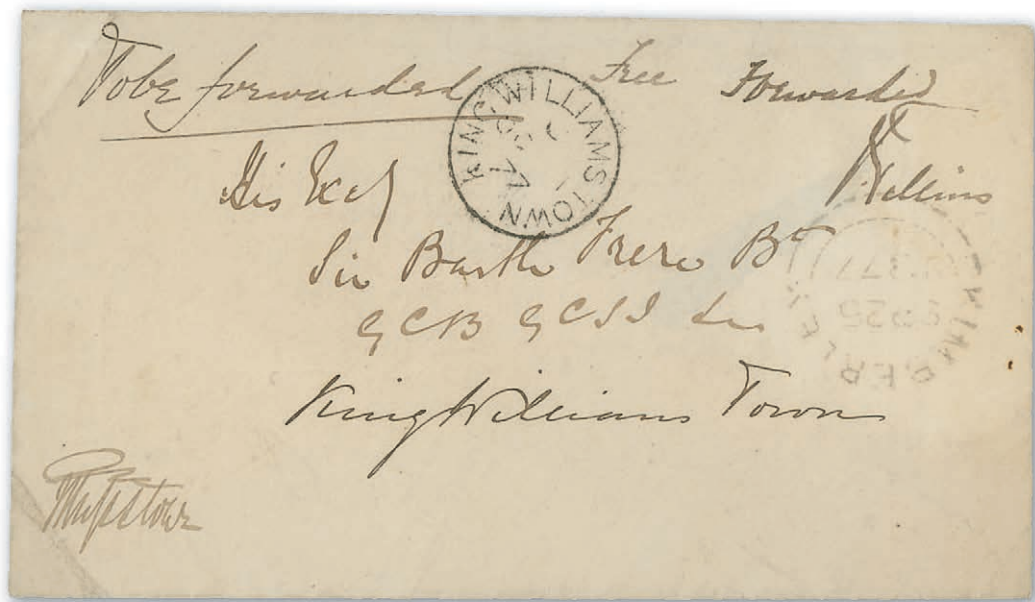 To be forwarded Free Forwarded
KING WILLIAMS TOWN
77
His Excy
Sir Bartle Frere Bt
GCB GCSI &c
King Williams Town
KIMBERLEY
SP 25